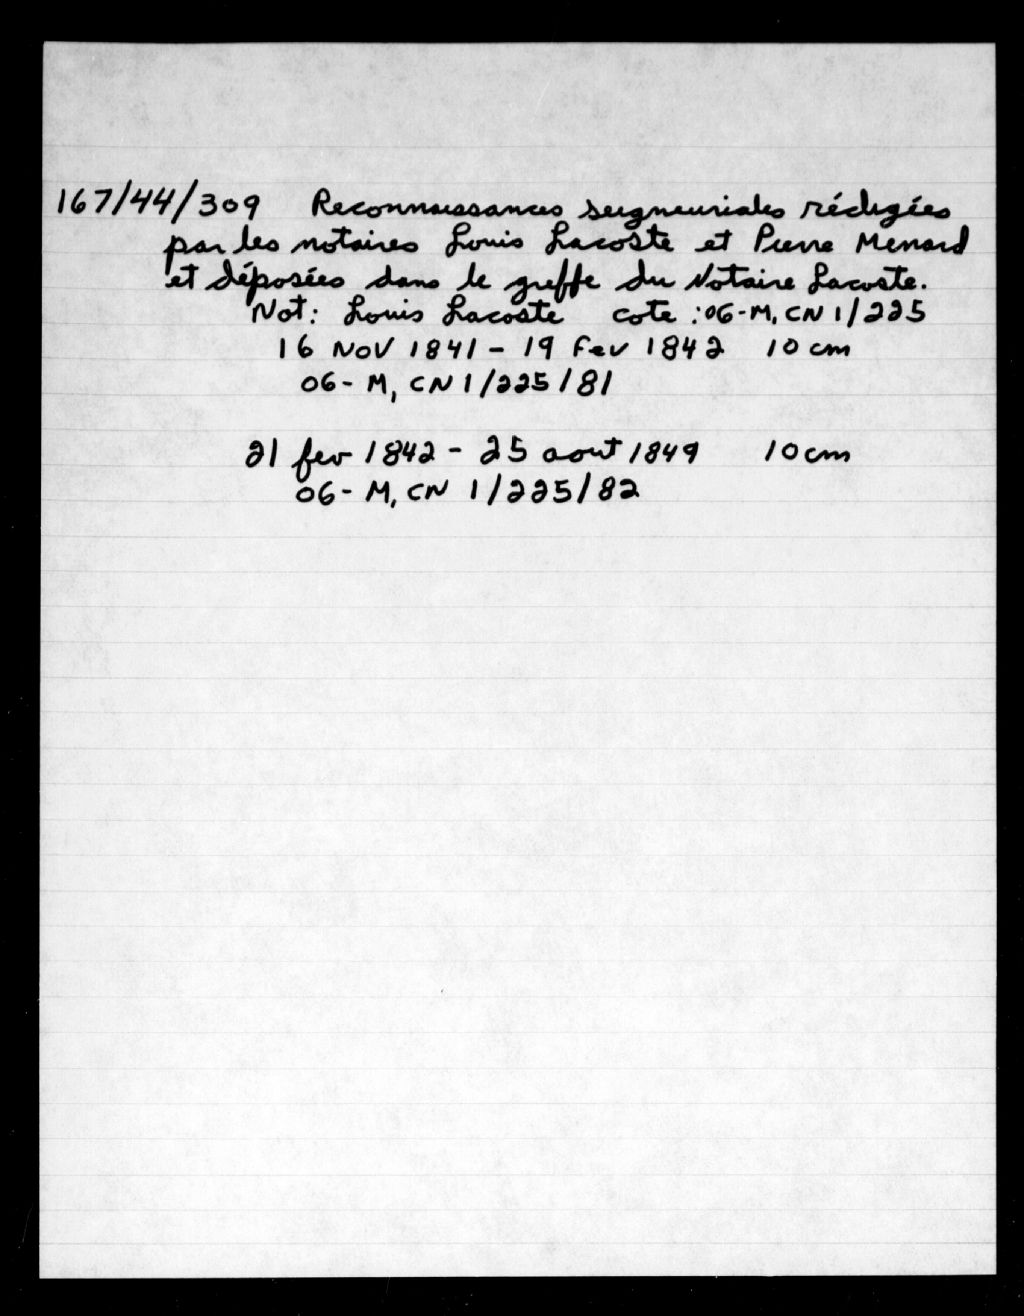 167/44/309 Reconnaissances seigneuriales rédigées
par les notaires Louis Lacoste et Pierre Menard
et déposées dans le greffe du Notaire Lacoste.
Not: Louis Lacoste cote : 06-M, CN 1/225
16 NOV 1841 - 19 Fev 1842 10 cm
06- M, CN 1/225/81
21 fev 1842 - 25 aout 1849 10 cm
06- M, CN 1/225/82